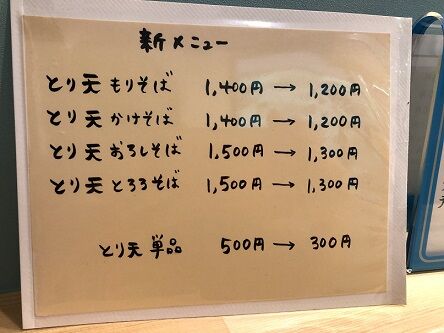 新メニュー
とり天 もりそば 1,400円 → 1,200円
とり天 かけそば 1,400円 → 1,200円
とり天 おろしそば 1,500円 → 1,300円
とり天 とろろそば 1,500円 → 1,300円
とり天 単品 500円 → 300円